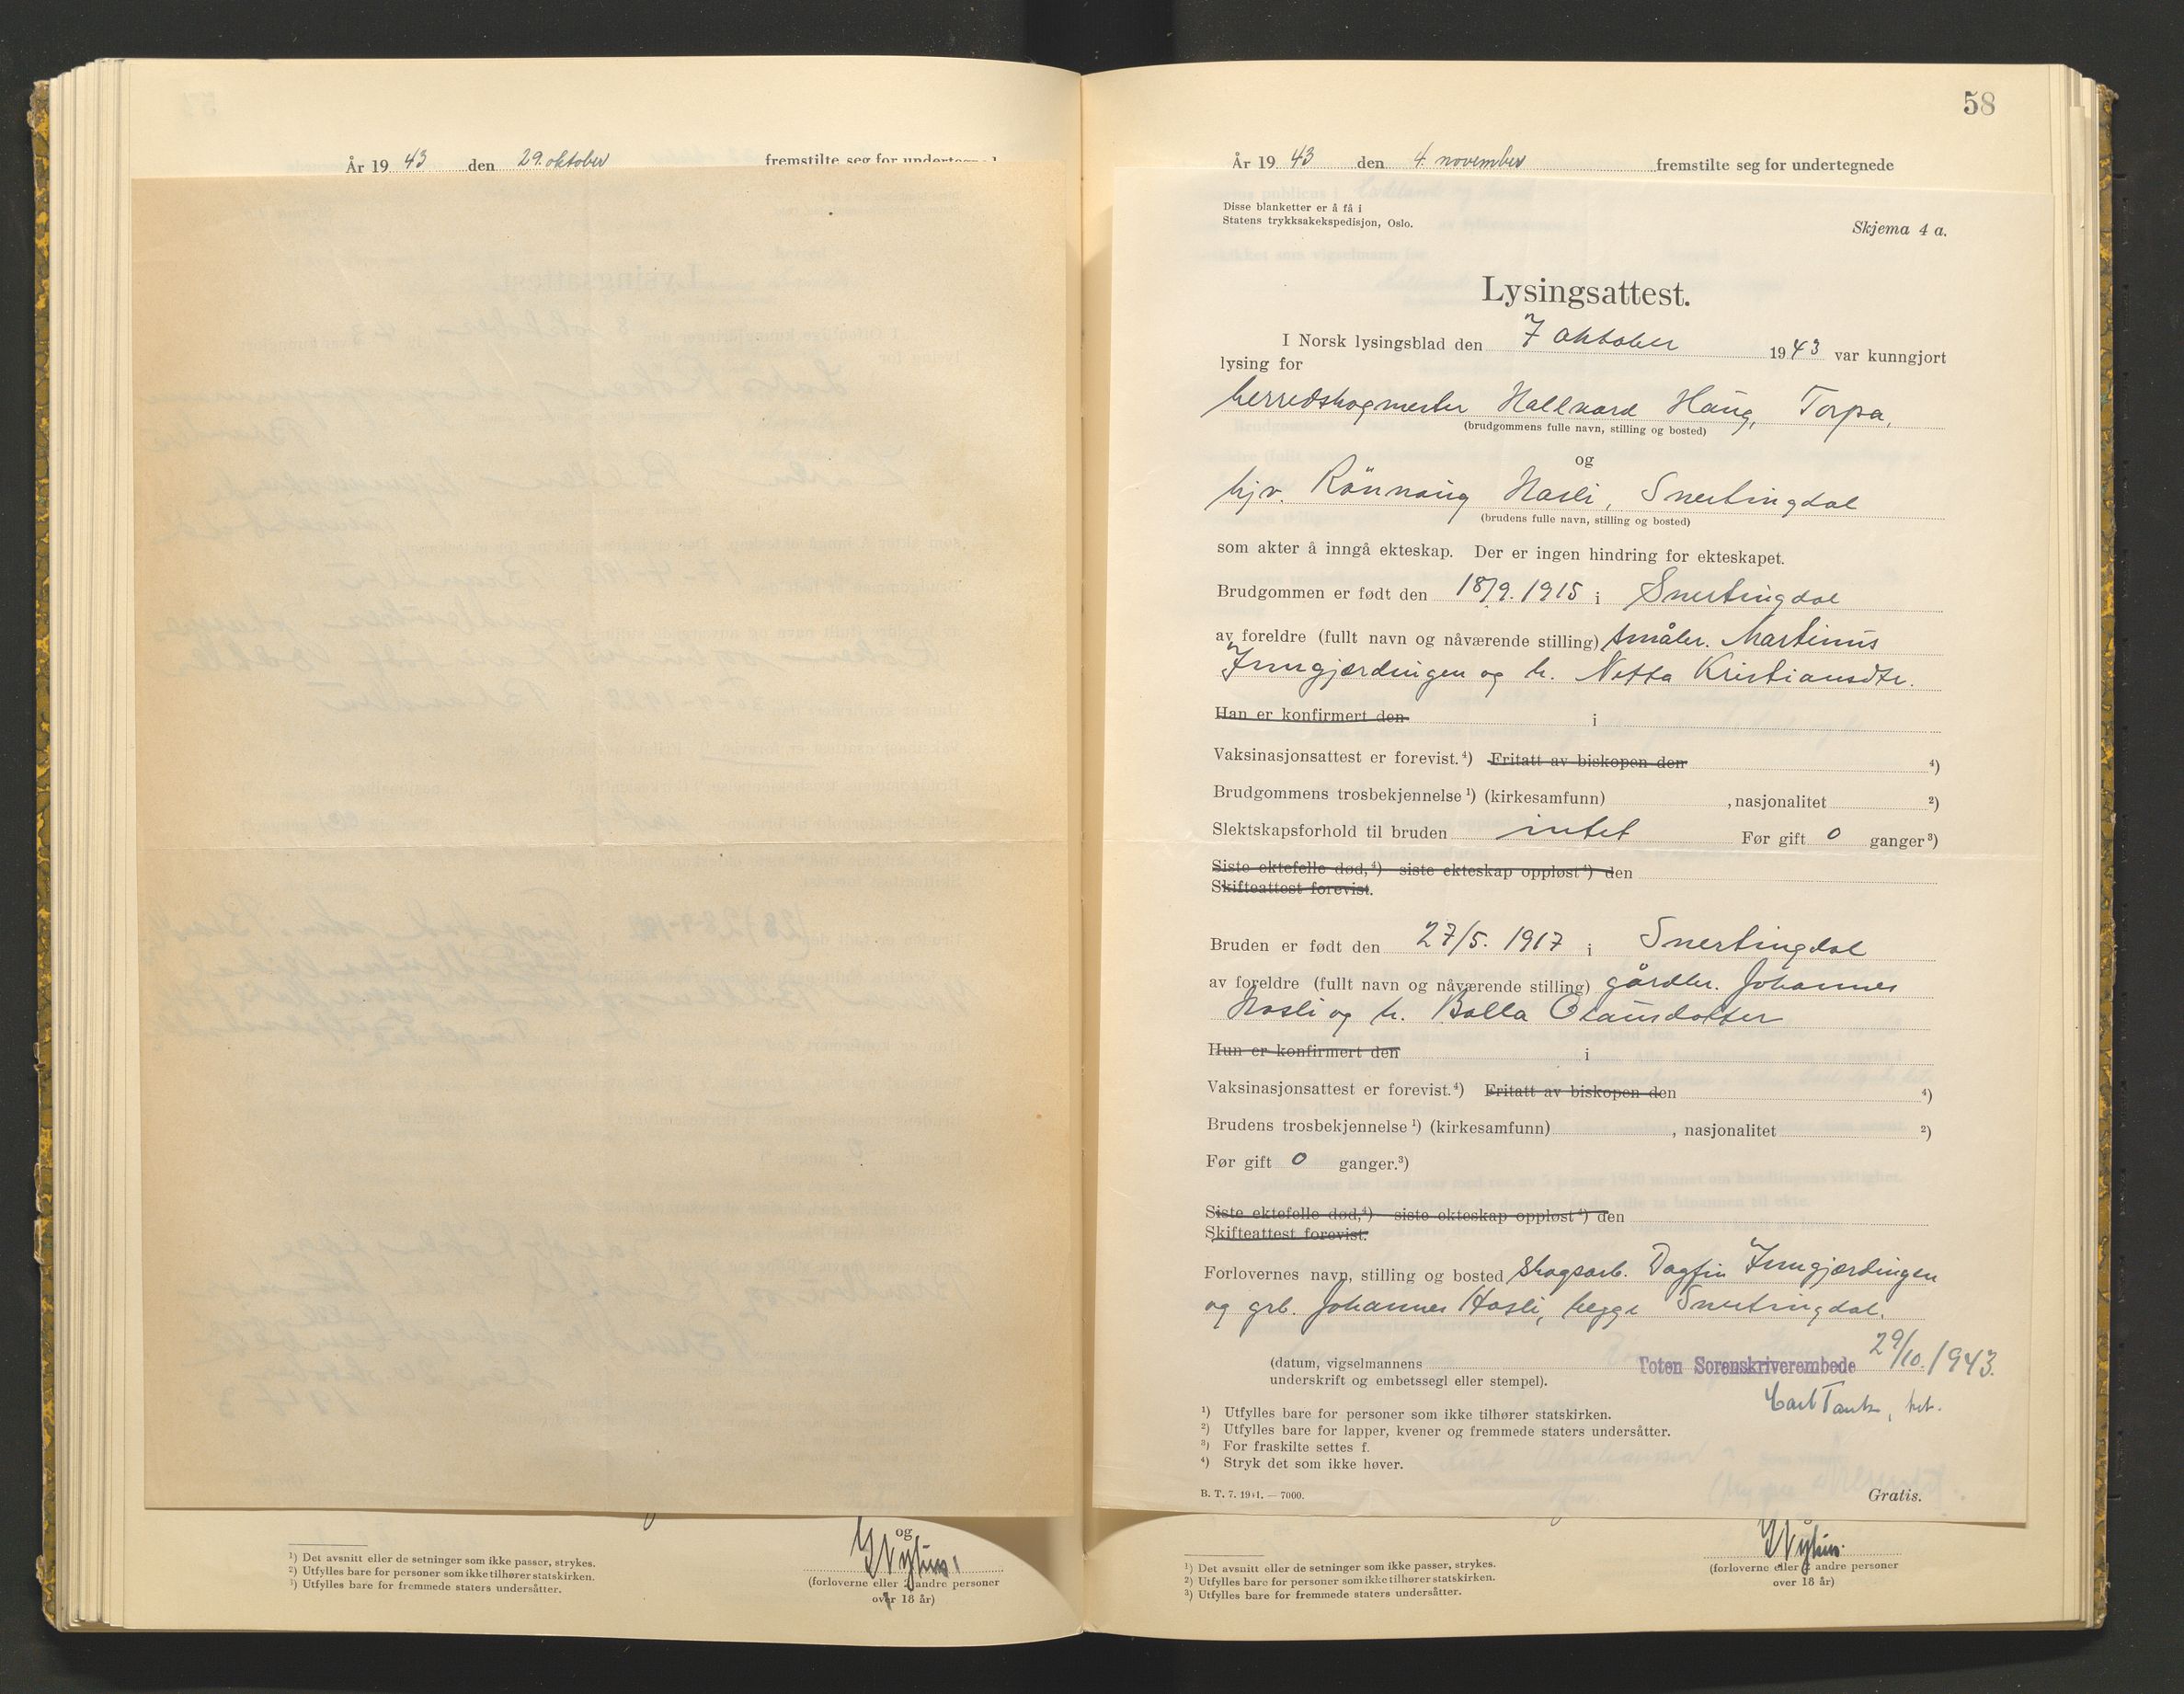 År 19 43 den 29. oktober fremstilte seg for
og
¹) Det avsnitt eller de setninger som ikke passer, strykes.
²) Utfylles bare for personer som ikke tilhører statskirken.
³) Utfylles bare for fremmede staters undersåtter.
(forloverne eller 2 andre personer
over 18 år)
58
År 19 43 den 4. november fremstilte seg for undertegnede
Disse blanketter er å få i
Statens trykksakekspedisjon, Oslo.
Skjema 4 a.
Lysingsattest.
I Norsk lysingsblad den 7 oktober 1943 var kunngjort
lysing for
herredskogmester Hallvard Haug, Torpa,
(brudgommens fulle navn, stilling og bosted)
og
hjv. Rönnaug Hasli, Snertingdal
(brudens fulle navn, stilling og bosted)
som akter å inngå ekteskap. Der er ingen hindring for ekteskapet.
Brudgommen er født den 18/9. 1915 i Snertingdal
av foreldre (fullt navn og nåværende stilling) småbr. Martinus
Inngjerdingen og h. Netta Kristiansdtr.
Han er konfirmert den i
Vaksinasjonsattest er forevist.⁴) Fritatt av biskopen den ⁴)
Brudgommens trosbekjennelse¹) (kirkesamfunn) , nasjonalitet ²)
Slektskapsforhold til bruden intet Før gift 0 ganger³)
Siste ektefelle død,⁴) siste ekteskap oppløst⁴) den
Skifteattest forevist.
Bruden er født den 27/5. 1917 i Snertingdal
av foreldre (fullt navn og nåværende stilling) gårdbr. Johannes
Hasli og h. Bolla Olausdotter
Hun er konfirmert den i
Vaksinasjonsattest er forevist.⁴) Fritatt av biskopen den ⁴)
Brudens trosbekjennelse¹) (kirkesamfunn) , nasjonalitet ²)
Før gift 0 ganger.³)
Siste ektefelle død,⁴) siste ekteskap oppløst⁴) den
Skifteattest forevist.
Forlovernes navn, stilling og bosted skogsarb. Dagfin Inngjerdingen
og grb. Johannes Hasli, begge Snertingdal.
(datum, vigselmannens Toten Sorenskriverembede 29/10. 1943.
underskrift og embetssegl eller stempel).
¹) Utfylles bare for personer som ikke tilhører statskirken.
²) Utfylles bare for lapper, kvener og fremmede staters undersåtter.
³) For fraskilte settes f.
⁴) Stryk det som ikke høver.
B. T. 7. 1941. — 7000.
Gratis.
¹) Det avsnitt eller de setninger som ikke passer, strykes.
²) Utfylles bare for personer som ikke tilhører statskirken.
³) Utfylles bare for fremmede staters undersåtter.
(forloverne eller 2 andre personer
over 18 år)